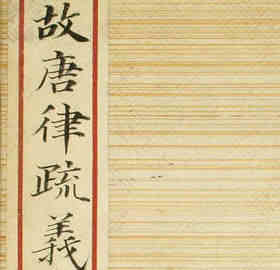 故唐律疏義